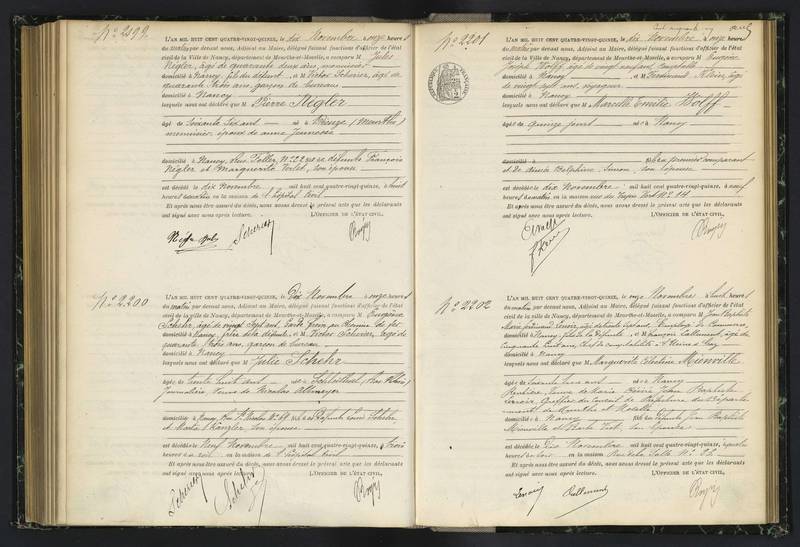 No 2199.
L'AN MIL HUIT CENT QUATRE-VINGT-QUINZE, le dix Novembre à onze heures
du matin par devant nous, Adjoint au Maire, délégué faisant fonctions d'officier de l'état
civil de la Ville de Nancy, département de Meurthe-et-Moselle, a comparu M Jules
Régler, âgé de quarante deux ans, menuisier
domicilié à Nancy, fils du défunt, & M Victor Scherer, âgé de
quarante trois ans, garçon de bureau
domicilié à Nancy
lesquels nous ont déclaré que M Pierre Régler
âgé de soixante six ans né à Dieuze (Meurthe)
menuisier, époux de Anne
domicilié à Nancy, rue No 22 fils de défunts François
Régler et Marguerite Verlet, son épouse
est décédé le dix Novembre mil huit cent quatre-vingt-quinze, à huit
heures du matin en la maison de l'hôpital Civil
Et après nous être assuré du décès, nous avons dressé le présent acte que les déclarants
ont signé avec nous après lecture. L'OFFICIER DE L'ÉTAT-CIVIL,
Scherer
No 2200
L'AN MIL HUIT CENT QUATRE-VINGT-QUINZE, le Dix Novembre à onze heures
du matin par devant nous, Adjoint au Maire, délégué faisant fonctions d'officier de l'état
civil de la Ville de Nancy, département de Meurthe-et-Moselle, a comparu M Eugène
Schehr, âgé de vingt sept ans, Garde frein au Chemin de fer
domicilié à Nancy, de la défunte & M Victor Scherer, âgé de
quarante trois ans, garçon de bureau
domicilié à Nancy
lesquels nous ont déclaré que M Julie Schehr
âgée de trente huit ans née à (Bas Rhin)
Journalière, veuve de Nicolas Altmeyer
domiciliée à Nancy, Rue St Nicolas No 69 fille de défunts Louis Schehr,
et Marie Kanzler, son épouse
est décédée le Neuf Novembre mil huit cent quatre-vingt-quinze, à trois
heures du soir en la maison de l'hôpital Civil
Et après nous être assuré du décès, nous avons dressé le présent acte que les déclarants
ont signé avec nous après lecture. L'OFFICIER DE L'ÉTAT-CIVIL,
Scherer
No 2201
L'AN MIL HUIT CENT QUATRE-VINGT-QUINZE, le dix Novembre à onze heures
du matin par devant nous, Adjoint au Maire, délégué faisant fonctions d'officier de l'état
civil de la Ville de Nancy, département de Meurthe-et-Moselle, a comparu M Eugène
Joseph Wolff, âgé de vingt
domicilié à Nancy & M Ferdinand Klein, âgé
de vingt sept ans, voyageur
domicilié à Nancy
lesquels nous ont déclaré que M Marcelle Emilie Wolff
âgée de quinze jours née à Nancy
domiciliée à fille du premier comparant
et de Aimée Delphine Simon, son épouse
est décédée le dix Novembre mil huit cent quatre-vingt-quinze, à neuf
heures du matin en la maison rue du No 14
Et après nous être assuré du décès, nous avons dressé le présent acte que les déclarants
ont signé avec nous après lecture. L'OFFICIER DE L'ÉTAT-CIVIL,
No 2202
L'AN MIL HUIT CENT QUATRE-VINGT-QUINZE, le onze Novembre à huit heures
du matin par devant nous, Adjoint au Maire, délégué faisant fonctions d'officier de l'état
civil de la Ville de Nancy, département de Meurthe-et-Moselle, a comparu M Jean Baptiste
Marie Lenoir, âgé de trente sept ans, Employé de Commerce,
domicilié à Nancy, fils de la défunte & M François Lallement, âgé de
cinquante huit ans, Chef de comptabilité
domicilié à Nancy
lesquels nous ont déclaré que M Marguerite Célestine Mienville
âgée de soixante ans née à Nancy
Rentière, veuve de Jean Baptiste
Lenoir, Greffier du Conseil de Préfecture du Département
de Meurthe et Moselle
domiciliée à Nancy fille de défunts Jean Baptiste
Mienville et son épouse
est décédée le Dix Novembre mil huit cent quatre-vingt-quinze, à quatre
heures du soir en la maison Rue de la Salle No 22
Et après nous être assuré du décès, nous avons dressé le présent acte que les déclarants
ont signé avec nous après lecture. L'OFFICIER DE L'ÉTAT-CIVIL,
Lenoir Lallement